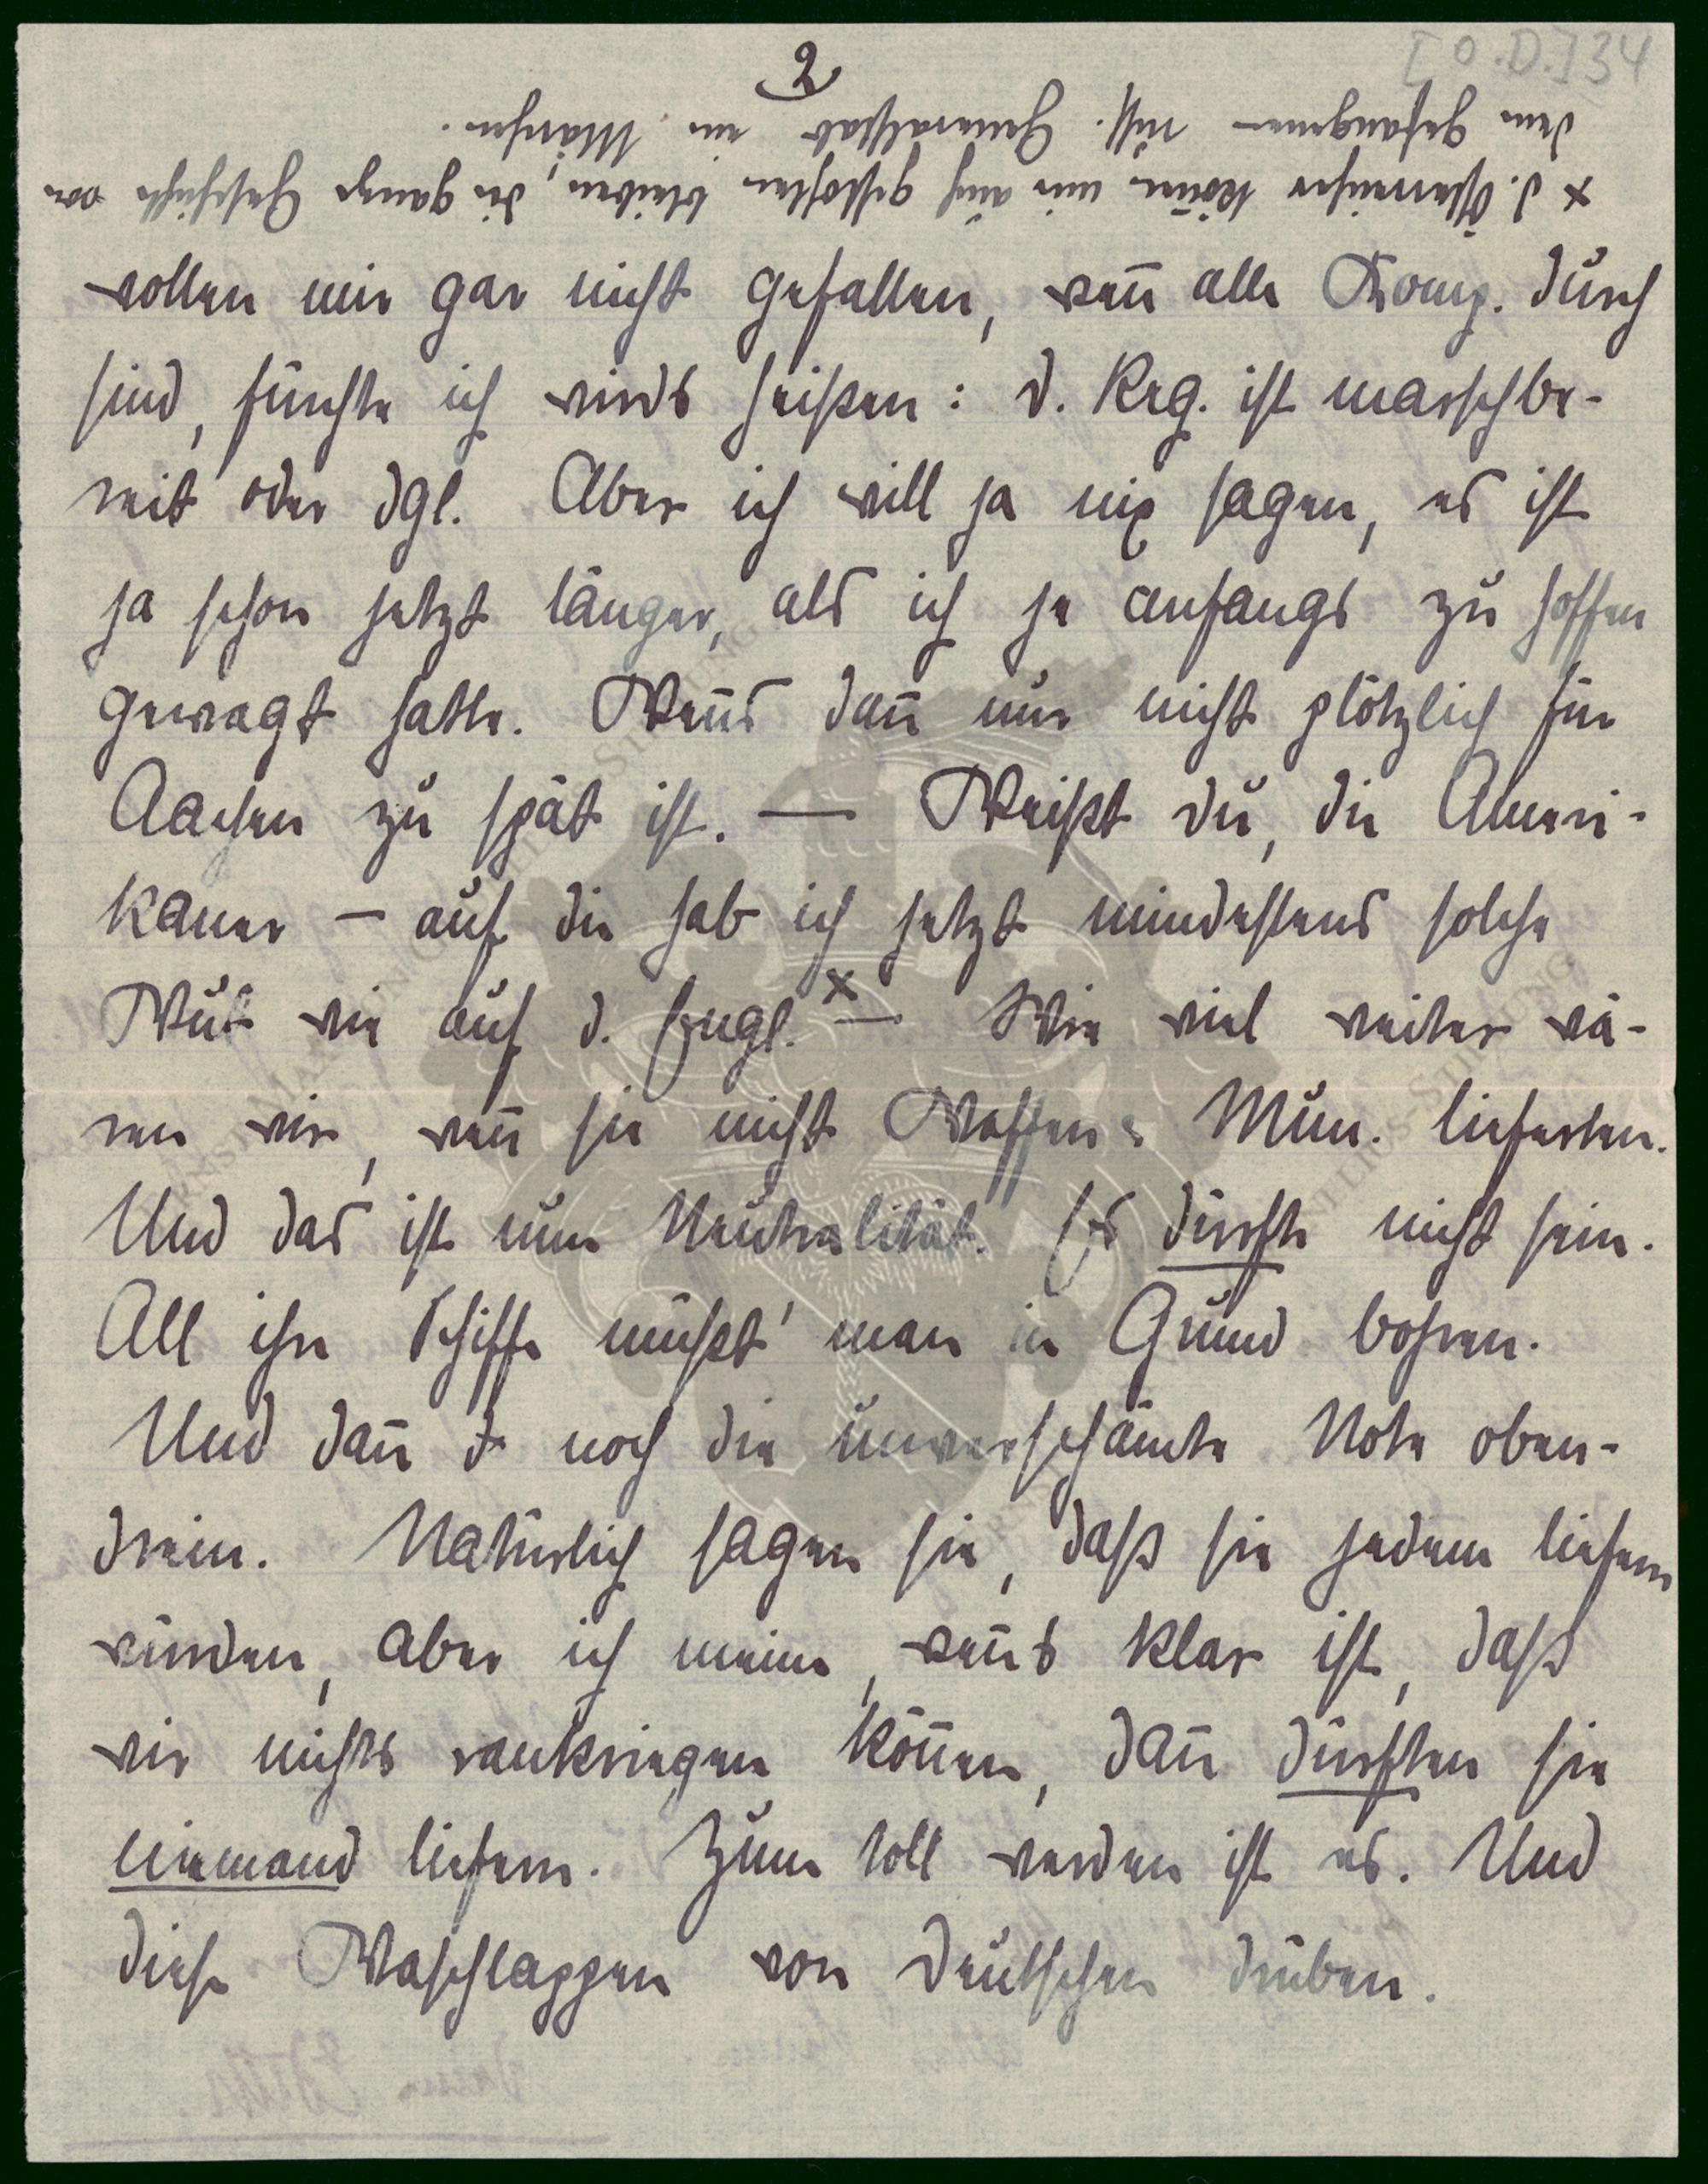 [O.D.] 34
2
x d. Österreicher können mir auch gestohlen bleiben, die ganze Geschichte von
dem gefangenen russ. Generalstab ein Märchen.
wollen mir gar nicht gefallen, wenn̄ alle Komp. durch
sind, fürchte ich wirds heißen: d. Reg. ist marschbe-
reit oder dgl. Aber ich will ja nix sagen, es ist
ja schon jetzt länger, als ich je anfangs zu hoffen
gewagt hatte. Wenns dann nur nicht plötzlich für
Aachen zu spät ist. — Weißt du, die Ameri-
kaner – auf die hab ich jetzt mindestens solche
Wut wie auf d. Engl. x — Wie viel weiter wä-
ren wir, wenn sie nicht Waffen u. Mun. lieferten.
Und das ist nun Neutralität. Es dürfte nicht sein.
All ihre Schiffe müßt' man in Grund bohren.
Und dann noch die unverschämte Note oben-
drein. Natürlich sagen sie, daß sie jedem liefern
würden, aber ich meine, wenns klar ist, daß
wir nichts rankriegen können, dann dürften sie
niemand liefern. Zum toll werden ist es. Und
diese Waschlappen von Deutschen drüben.